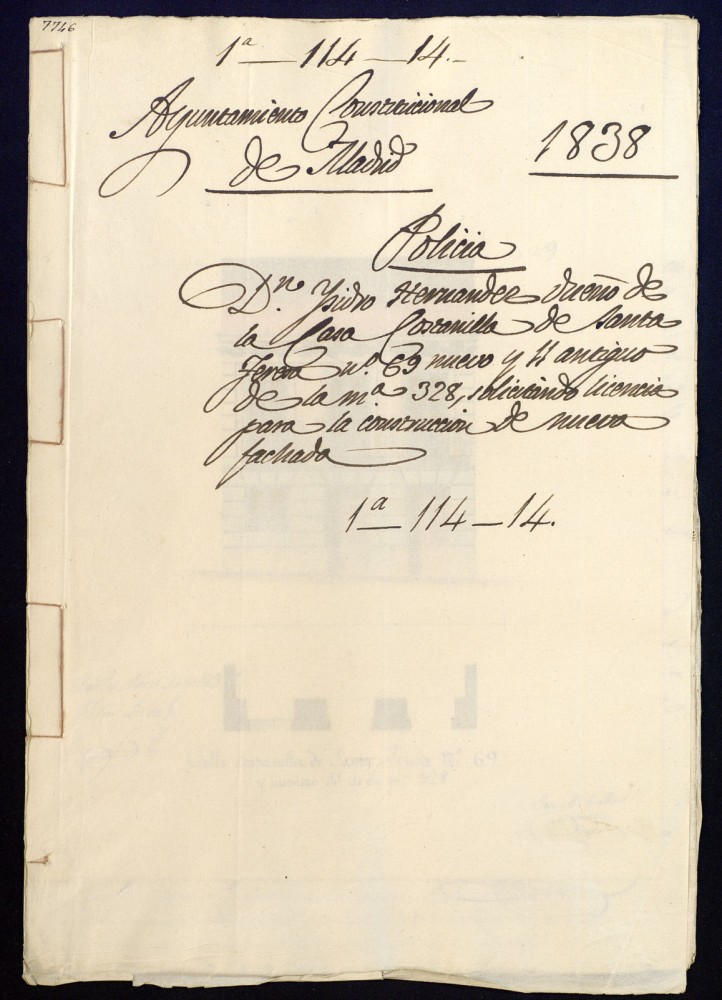 7746
1ª — 114 — 14.-
Ayuntamiento Constitucional
de Madrid
1838
Policia
D.n Ysidro Hernandez dueño de
la Casa Costanilla de Santa
Teresa nº. 69 nuevo y 11 antiguo
de la mª 328, solicitando licencia
para la construccion de nueva
fachada
1ª — 114 — 14.